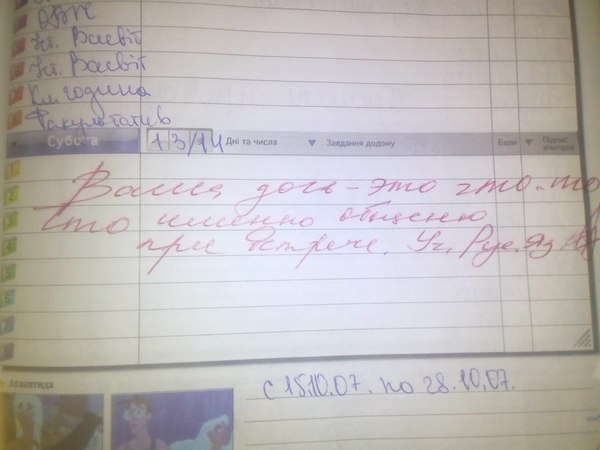 Іст. Всесвіт
Іст. Всесвіт
Кл. година
Факультатив
Субота 13/14 Дні та числа Завдання додому Бали Підпис вчителя
1
2
3
4
5
6
7
8
Ваша дочь - это что-то
Что именно объясню
при встрече. Уч. Рус. яз.
Атлантида
с 15.10.07. по 28.10.07.